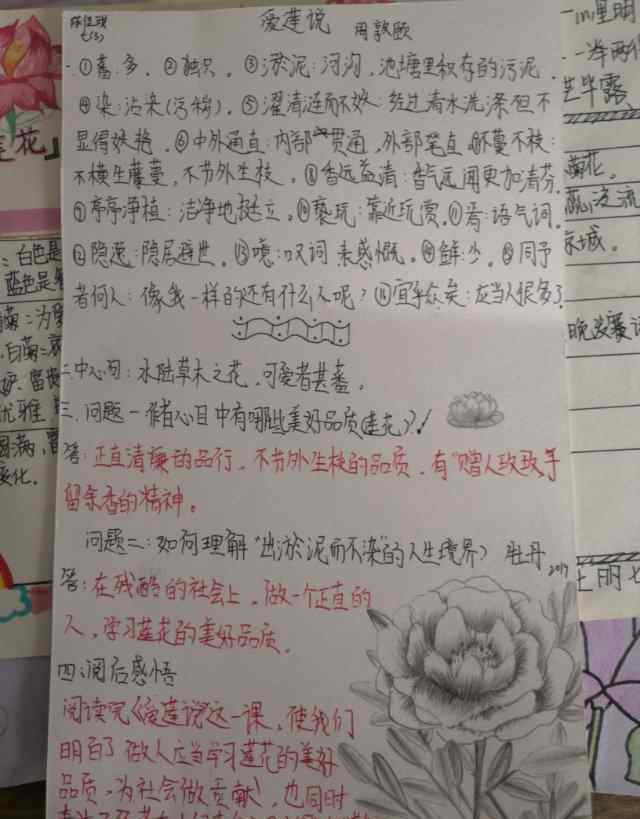 爱莲说 周敦颐
七(3)
①蕃:多. ②独:只. ③淤泥:河沟,池塘里积存的污泥.
④染:沾染(污秽). ⑤濯清涟而不妖:经过清水洗涤但不
显得妖艳. ⑥中外通直:内部贯通,外部笔直. ⑦不蔓不枝:
不横生藤蔓,不旁外生枝. ⑧香远益清:香气远闻更加清芬.
⑨亭亭净植:洁净地挺立. ⑩亵玩:靠近玩赏. ⑪焉:语气词.
⑫隐逸:隐居避世. ⑬噫:叹词 表感慨. ⑭鲜:少. ⑮同予
者何人:像我一样的还有什么人呢? ⑯宜乎众矣:应当人很多了
二.中心句:水陆草木之花,可爱者甚蕃.
三.问题一作者心目中有哪些美好品质(莲花)?!
答:正直清廉的品行,不节外生枝的品质,有"赠人玫瑰手
留余香的精神。
问题二:如何理解"出淤泥而不染"的人生境界? 牡丹
2019
答:在残酷的社会上,做一个正直的
人,学习莲花的美好品质.
四:阅后感悟
阅读完《爱莲说》这一课,使我们
明白了做人应当学习莲花的美好
品质,为社会做贡献,也同时
花」
:白色是
蓝色是
菊:为
白菊:
富
优雅
圆满,富
变化.
里明
一洋两
毕露
菊花.
泛流
京城.
晚谈赛
上丽